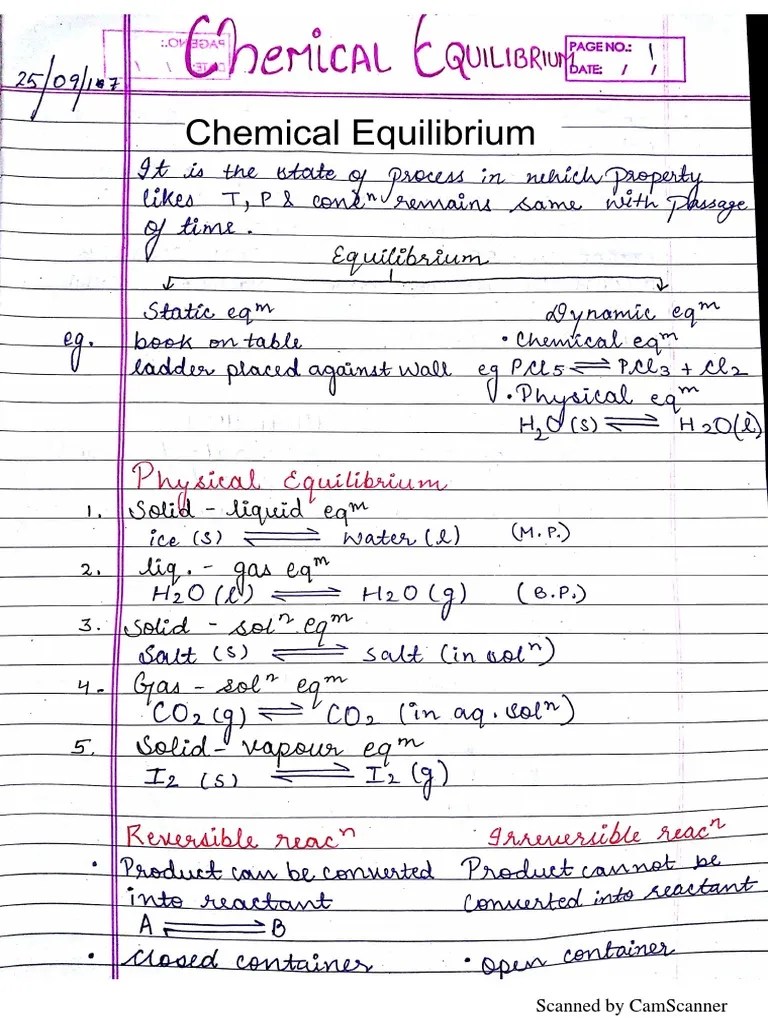 Chemical Equilibrium
PAGE NO.: 1
DATE: / /
25/09/
Chemical Equilibrium
It is the state of process in which property
likes T, P & concⁿ remains same with passage
of time.
Equilibrium
Static eqᵐ Dynamic eqᵐ
eg. book on table • Chemical eqᵐ
ladder placed against wall eg PCl5 ⇌ PCl3 + Cl2
• Physical eqᵐ
H2O (s) ⇌ H2O(l)
Physical Equilibrium
1. Solid - liquid eqᵐ
ice (s) ⇌ water (l) (M.P.)
2. liq. - gas eqᵐ
H2O (l) ⇌ H2O (g) (B.P.)
3. Solid - solⁿ eqᵐ
Salt (s) ⇌ salt (in solⁿ)
4. Gas - solⁿ eqᵐ
CO2 (g) ⇌ CO2 (in aq. solⁿ)
5. Solid - vapour eqᵐ
I2 (s) ⇌ I2 (g)
Reversible reacⁿ Irreversible reacⁿ
• Product can be converted Product cannot be
into reactant converted into reactant
A ⇌ B
• closed container • open container
Scanned by CamScanner